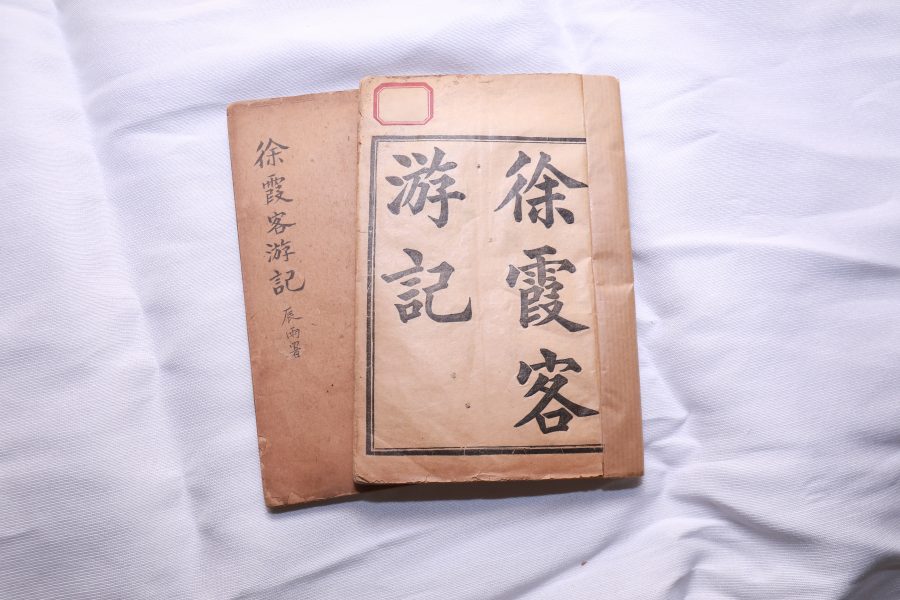 徐霞客
游記
徐霞客游記
辰雨署